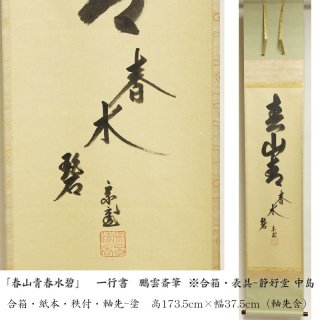 青
春
水
碧
春山青
春
水
碧
「春山青春水碧」 一行書 鵬雲斎筆 ※合箱・表具-静好堂 中島
合箱・紙本・秩付・軸先-塗 高173.5cm×幅37.5cm（軸先含）